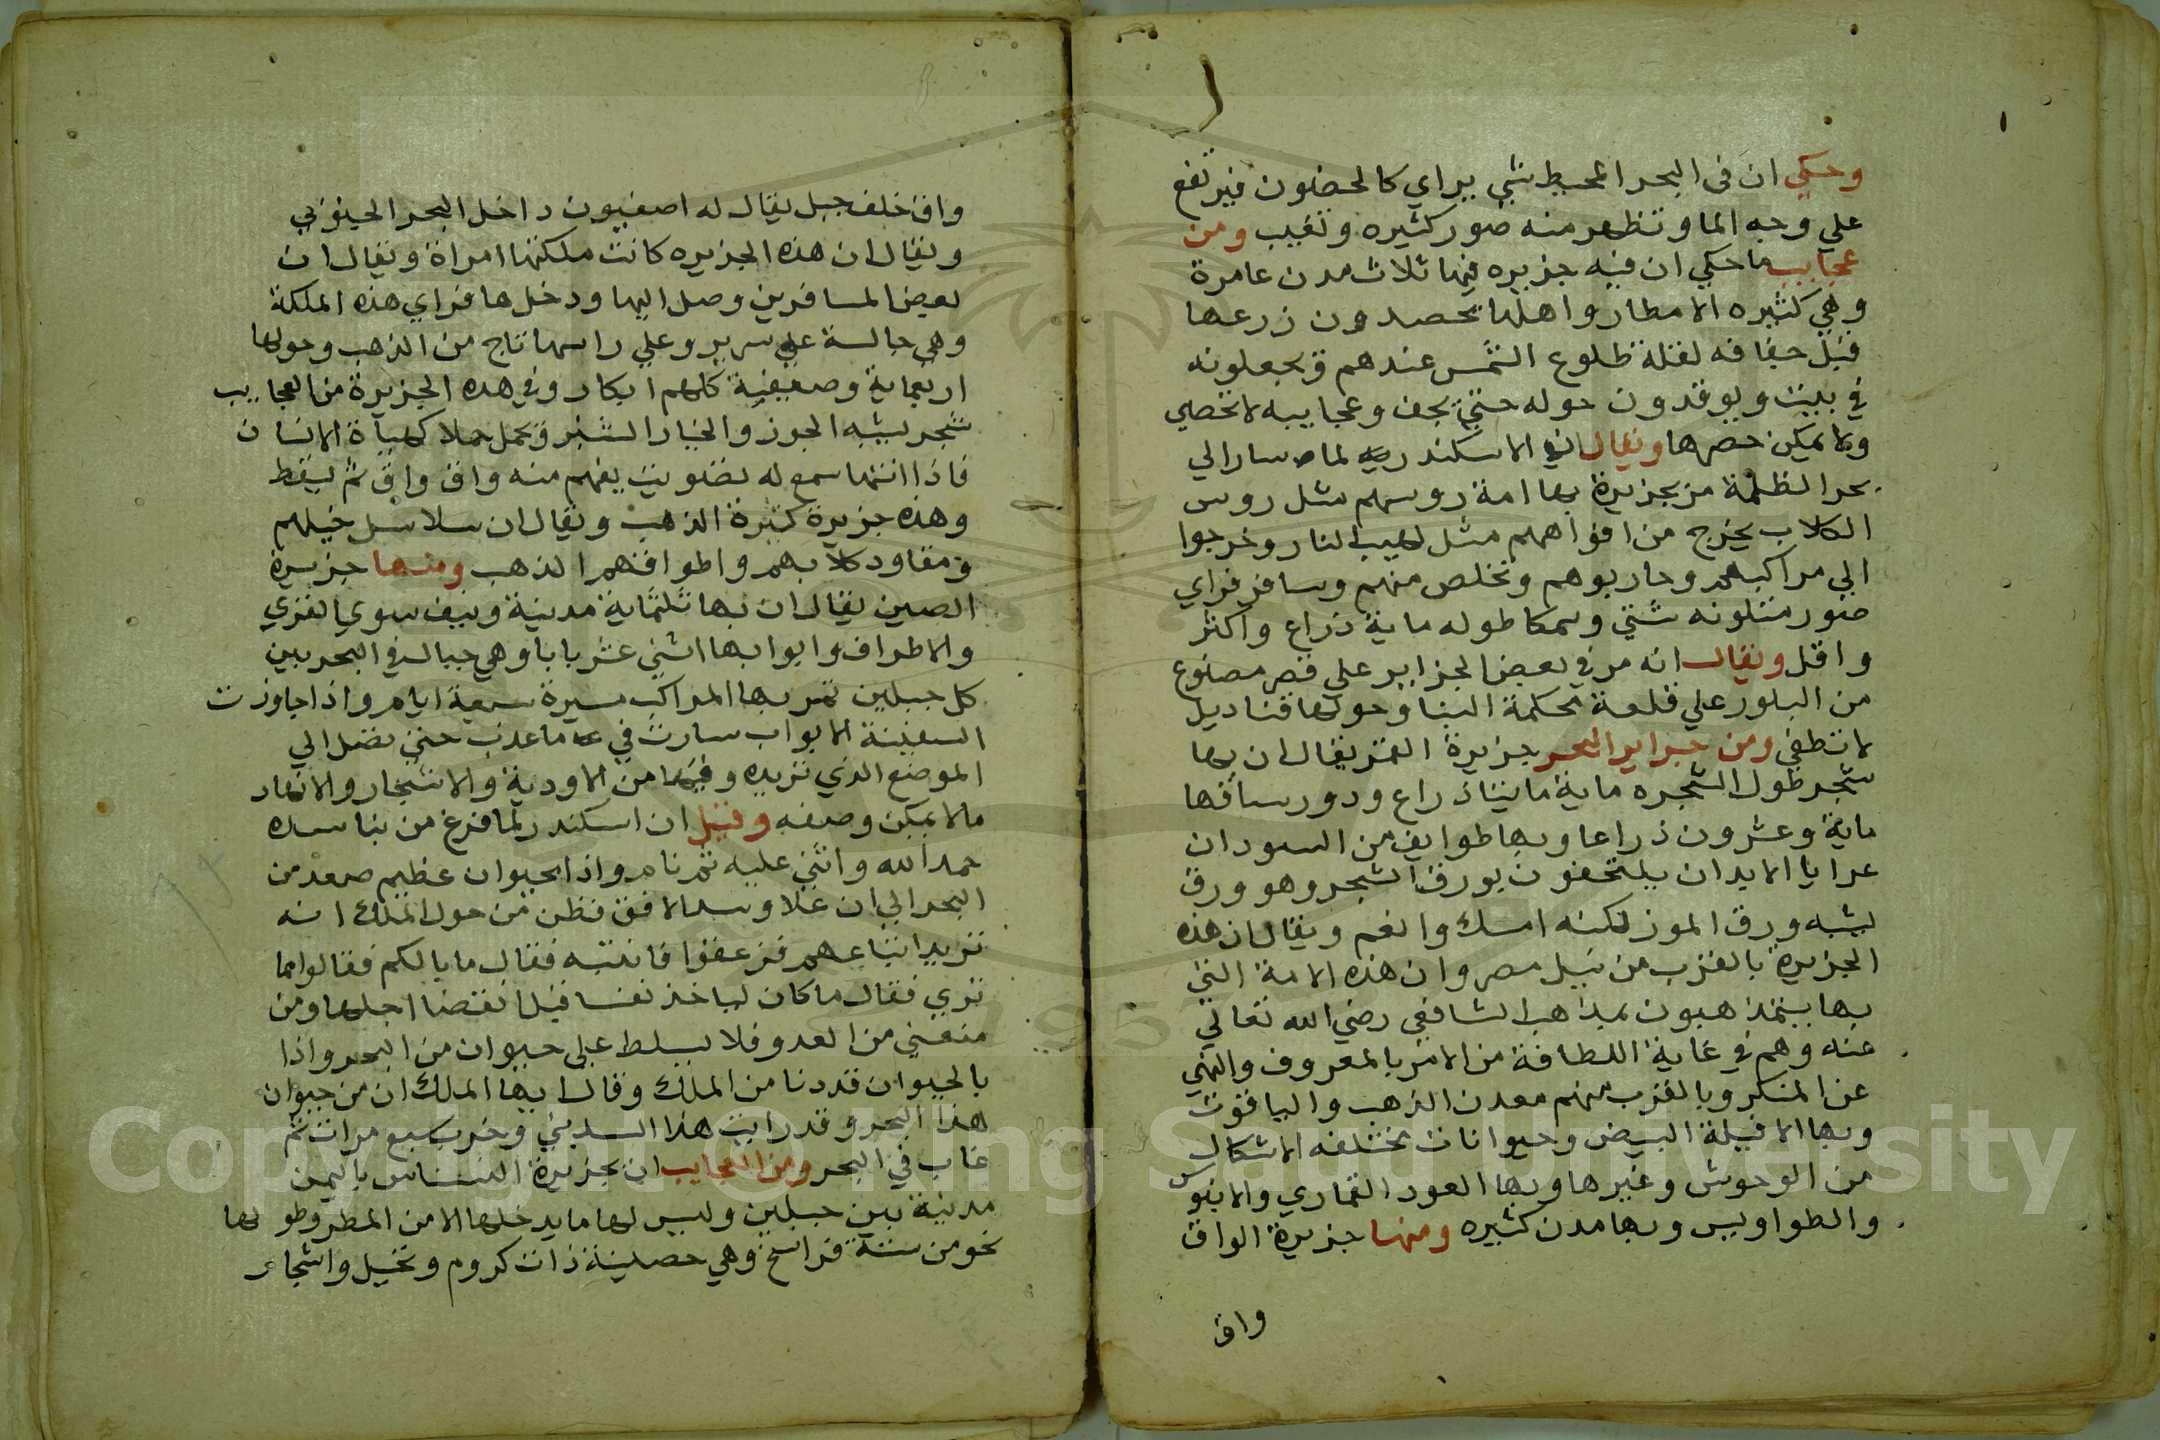 وحكي ان في البحر المحيط شي يراي كالحضون فيرتفع
علي وجه الما وتظهر منه صور كثيره وتغيب ومن
عجايبه ما حكي ان فيه جزيره فيها ثلاث مدن عامرة
وهي كثيره الامطار واهلها يحصدون زرعها
قبل جفافه لقلة طلوع الشمس عندهم ويجعلونه
في بيت ويوقدون حوله حتي يجف وعجايبه لا تحصي
ولا يمكن حصرها ويقال ان الاسكندر لما سار الي
بحر الظلمة مر بجزيرة بها امة روسهم مثل روس
الكلاب يخرج من افواههم مثل لهيب النار وخرجوا
الي مراكبهم وحاربوهم وتخلص منهم وسافر فراي
صور متلونه شتي وسمكا طوله ماية ذراع واكثر
واقل ويقال انه مر في بعض الجزاير علي قصر مصنوع
من البلور علي قلعة محكمة البنا وحولها قناديل
لا تطفي ومن جزاير البحر جزيرة القمر يقال ان بها
شجر طول الشجره ماية مايتا ذراع ودور ساقها
ماية وعشرون ذراعا وبها طوايف من السودان
عرايا الابدان يلتحفون بورق الشجر وهو ورق
يشبه ورق الموز لكنه امسك وانعم ويقال ان هذه
الجزيرة بالقرب من نيل مصر وان هذه الامة التي
بها يتمذهبون بمذاهب الشافعي رضي الله تعالي
عنه وهم في غاية اللطافة من الامر بالمعروف والنهي
عن المنكر وبالقرب منهم معدن الذهب والياقوت
وبها الافيلة البيض وحيوانات مختلفه الاشكال
من الوحوش وغيرها وبها العود القماري والابنوس
والطواويس وبها مدن كثيره ومنها جزيرة الواق
واق
واق خلف جبل يقال له اصفيون داخل البحر الجنوبي
ويقال ان هذه الجزيره كانت ملكتها امراة ويقال ان
بعض المسافرين وصل اليها ودخلها فراي هذه الملكة
وهي جالسة علي سرير وعلي راسها تاج من الذهب وحولها
اربعماية وصفية كلهم ابكار وفي هذه الجزيرة من العجايب
شجر يشبه الجوز والخيار الشنبر ويحمل حملا كهياة الانسان
فاذا انتها سمع له تصويت يفهم منه واق واق ثم يسقط
وهذه جزيرة كثيرة الذهب ويقال ان سلاسل خيلهم
ومقاود كلابهم واطواقهم الذهب ومنها جزيرة
الصين يقال ان بها ثلثماية مدينة ونيف سوي القري
والاطراف وابوابها اثني عشر بابا وهي جبال في البحر بين
كل جبلين تمر بها المراكب مسيرة سبعة ايام واذا جاوزت
السفينة الابواب سارت في ما عذب حتي تصل الي
الموضع الذي تريده وفيها من الاودية والاشجار والانهار
مالا يمكن وصفه وقيل ان اسكندر لما فرغ من بنا سده
حمد الله واثني عليه ثم نام واذا بحيوان عظيم صعد من
البحر الي ان علا وسد الافق فظن من حول الملك انه
يريد ابتلاعهم فزعقوا فانتبه فقال ما بالكم فقالوا مما
تري فقال ما كان لياخذ نفسا قبل انقضا اجلها ومن
منعني من العدو فلا يسلط علي حيوان من البحر واذا
بالحيوان قد دنا من الملك وقال ايها الملك ان من حيوان
هذا البحر وقد رايت هذا السد بني وخرب سبع مرات ثم
غاب في البحر ومن العجايب ان بجزيرة النسناس باليمن
مدينة بين جبلين وليس لها ما يدخلها الا من المطر وطولها
نحو من ستة فراسخ وهي حصينة ذات كروم ونخيل واشجار
Copyright © King Saud University